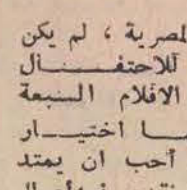 لمصرية ، لم يكن
للاحتفـــــال
الافلام السبعة
ـا اختيــــار
أحب ان يمتد